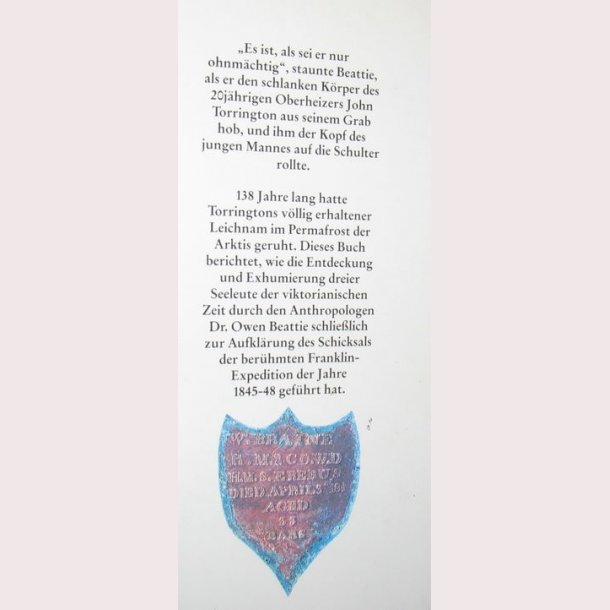 „Es ist, als sei er nur
ohnmächtig“, staunte Beattie,
als er den schlanken Körper des
20jährigen Oberheizers John
Torrington aus seinem Grab
hob, und ihm der Kopf des
jungen Mannes auf die Schulter
rollte.
138 Jahre lang hatte
Torringtons völlig erhaltener
Leichnam im Permafrost der
Arktis geruht. Dieses Buch
berichtet, wie die Entdeckung
und Exhumierung dreier
Seeleute der viktorianischen
Zeit durch den Anthropologen
Dr. Owen Beattie schließlich
zur Aufklärung des Schicksals
der berühmten Franklin-
Expedition der Jahre
1845-48 geführt hat.
W. BRAINE
H.M.S. EREBUS
DIED APRIL
AGED
33